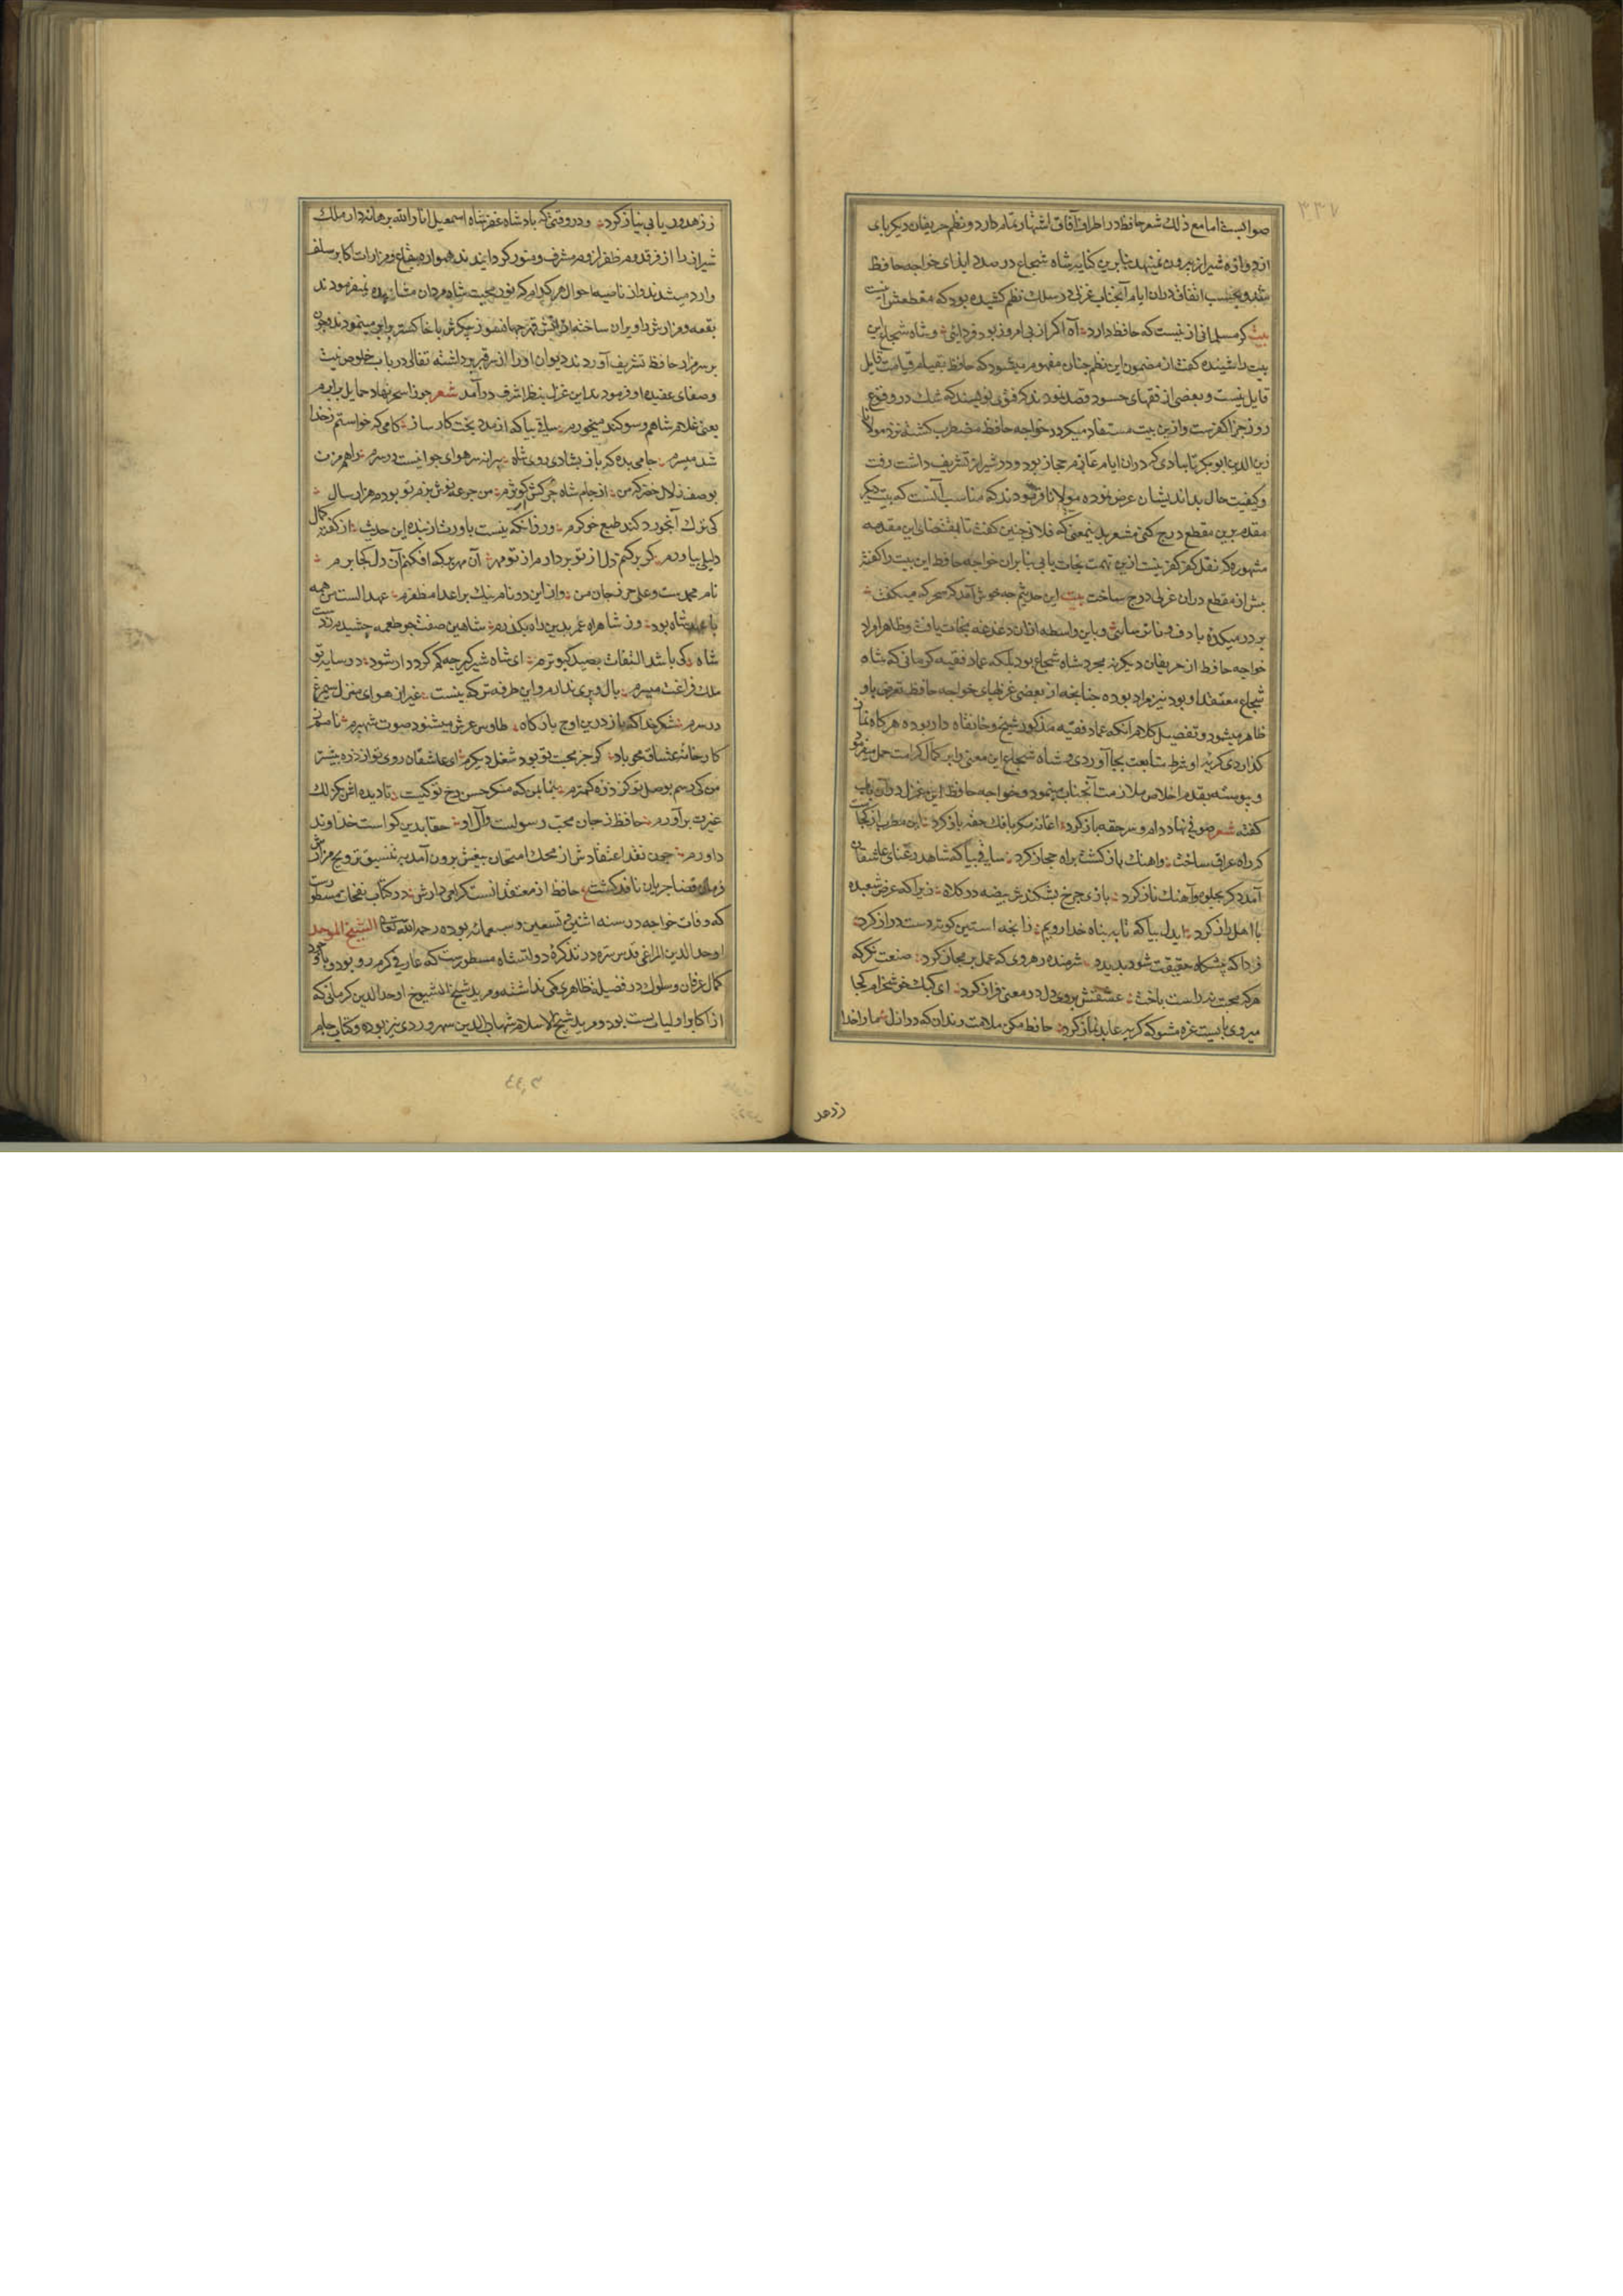 ۳۳۷
صوابست اما مع ذلک شعر حافظ در اطراف آفاق اشتهار تمام دارد و نظم حریفان دیکر پای
از دروازه شیراز بیرون نمینهد بنابرین کنایه شاه شجاع در صدد ایذای خواجه حافظ
شد و بحسب اتفاق دران ایام آنجناب غزلی در سلک نظم کشیده بود که مقطعش اینست
بیت کر مسلمانی از نیست که حافظ دارد آه اکر از پی امروز بود فردائی و شاه شجاع این
بیت را شنیده کفت از مضمون این نظم چنان مفهوم میشود که حافظ بقیام قیامت قایل
قایل نیست و بعضی از فقهای حسود قصد نمودند که فتوی نویسند که شک در وقوع
روز جزا کفرست و ازین بیت مستفاد میکردد خواجه حافظ مضطرب کشته نزد مولانا
زین الدین ابوبکر تایبادی که دران ایام عازم حجاز بود و در شیراز تشریف داشت رفت
و کیفیت حال بداندیشان عرض نموده مولانا فرمودند که مناسب آنست که بیت دیکر
مقدم برین مقطع درج کنی مشعر بدینمعنی که فلانی چنین کفت تا بمقتضای این مقدمه
مشهوره که نقل کفر کفر نیست ازین تهمت نجات یابی بنابران خواجه حافظ این بیت را کفته
پیش از مقطع دران غزل درج ساخت بیت این حدیثم چه خوش آمد که سحرکه میکفت
بر در میکده با دف و نی ترسائی و باین واسطه ازان دغدغه نجات یافت و ظاهرا مراد
خواجه حافظ از حریفان دیکر نه مجرد شاه شجاع بود بلکه عماد فقیه کرمانی که شاه
شجاع معتقد او بود نیز مراد بوده چنانچه از بعضی غزلهای خواجه حافظ تعرض باو
ظاهر میشود و تفصیل کلام آنکه عماد فقیه مذکور شیخ و خانقاه دار بوده هرکاه نماز
کذاردی کربه او شرط متابعت بجا آوردی و شاه شجاع این معنی را بر کمال کرامت حمل میفرمود
و پیوسته بقدم اخلاص ملازمت آنجناب مینمود و خواجه حافظ این غزل دران باب
کفته شعر صوفی نهاد دام و سر حقه باز کرد آغاز مکر با فلک حقه باز کرد این مطرب از کجاست
که راه عراق ساخت و آهنک باز کشت براه حجاز کرد ساقی بیا که شاهد رعنای عاشقان
آمد دکر بجلوه و آهنک ناز کرد بازی چرخ بشکندش بیضه در کلاه زیرا که عرض شعبده
با اهل راز کرد ایدل بیا که تا به پناه خدا رویم زانچه استین کوته و دست دراز کرد
فردا که پیشکاه حقیقت شود پدید شرمنده رهروی که عمل بر مجاز کرد صنعت مکن که
هرکه محبت نه راست باخت عشقش بروی دل در معنی فراز کرد ای کبک خوشخرام کجا
میروی بایست غره مشو که کربه عابد نماز کرد حافظ مکن ملامت رندان که در ازل ما را خدا
ززهد
ز زهد و ریا بی نیاز کرد و در وقتی که پادشاه غفران پناه شاه اسمعیل انار الله برهانه دار ملک
شیراز را از فر قدوم ظفر لزوم مشرف و منور کردانیدند همواره ببقاع و مزارات اکابر سلف
وارد میشدند و از ناصیه احوال هر کدام که نور محبت شاه مردان مشاهده نمیفرمودند
بقعه و مزارش را ویران ساخته
بر سر مزار حافظ تشریف آوردند دیوان او را از سر قبر برداشته تفالی در باب خلوص نیت
و صفای عقیده او فرمودند این غزل بنظر اشرف درآمد شعر جوزا سحر نهاد حمایل برابرم
یعنی غلام شاهم و سوکند میخورم ساقی بیا که از مدد بخت کارساز کامی که خواستم ز خدا
شد میسرم جامی بده که باز بشادی روی شاه پیرانه سر هوای جوانیست در سرم راهم مزن
بوصف زلال خضر که من از جام شاه جرعه کش کوثرم من جرعه نوش بزم تو بودم هزار سال
کی ترک آبخورد کند طبع خوکرم ور زانکه نیست باورت از بنده این حدیث از کفته کمال
دلیلی بیاورم کر برکنم دل از تو بردارم از تو مهر آن مهر بر که افکنم آن دل کجا برم
نام محمدست و علی حرز جان من وز این دو نام نیک بر اعدا مظفرم عهد الست من همه
با عهد شاه بود وز شاهراه عمر بدین راه بکذرم شاهین صفت چو طعمه چشیدم ز دست
شاه کی باشد التفات بصید کبوترم ای شاه شیرکیر چه کم کردد ار شود در سایه تو
ملک فراغت میسرم بال و پری ندارم و این طرفه تر که نیست غیر از هوای منزل سیمرغ
در سرم شکر خدا که باز درین اوج بارکاه طاوس عرش میشنود صوت شهپرم نامم ز
کارخانه عشاق محو باد کر جز محبت تو بود شغل دیکرم ای عاشقان روی تو از ذره بیشتر
من کی رسم بوصل تو کز ذره کمترم بنما بمن که منکر حسن رخ تو کیست تا دیده اش بکزلک
غیرت برآورم حافظ ز جان محب رسولست و آل او حقا بدین کواست خداوند
داورم چون نقد اعتقادش از محک امتحان بیغش برون آمد به تنسیق و ترویج مزارش
فرمان قضا جریان نافذ کشت حافظ از معتقدانست کرامی دارش در کتاب نفحات مسطورست
که وفات خواجه در سنه اثنی و تسعین و سبعمائه بوده رحمه الله تعالی الشیخ الموحد
اوحد الدین المراغی قدس سره در تذکره دولتشاه مسطورست که عارفی کرم رو بود و با وجود
کمال عرفان و سلوک در فضیلة ظاهری کمی نداشته و مرید شیخ الشیوخ اوحد الدین کرمانی که
از اکابر اولیاست بود و مرید شیخ الاسلام شهاب الدین سهروردی نیز بوده و کتاب جام